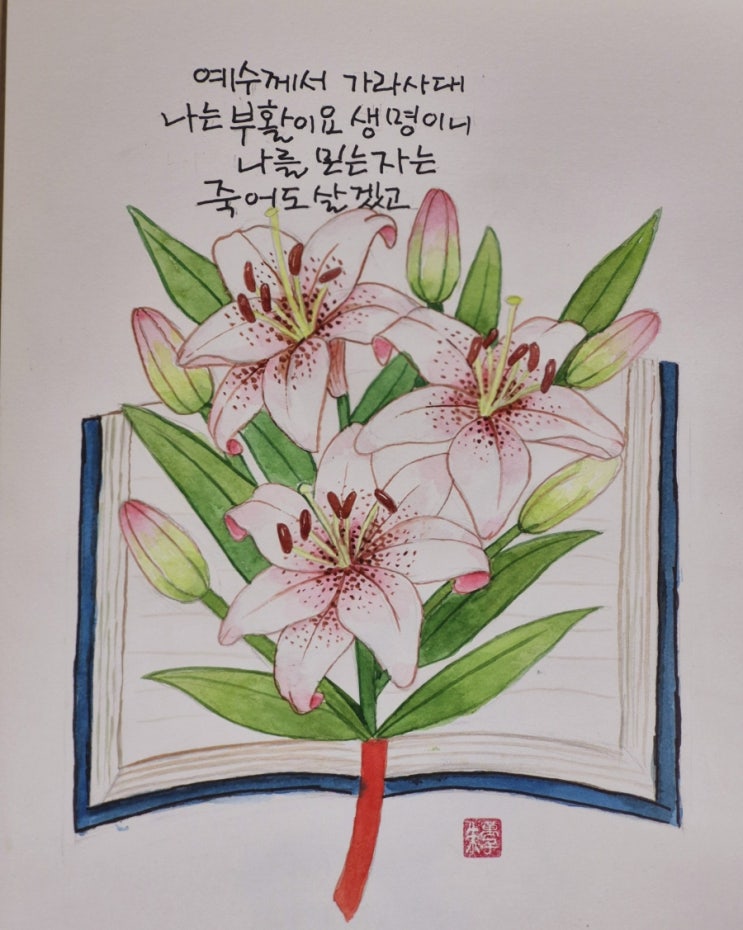 예수께서 가라사대
나는 부활이요 생명이니
나를 믿는자는
죽어도 살겠고